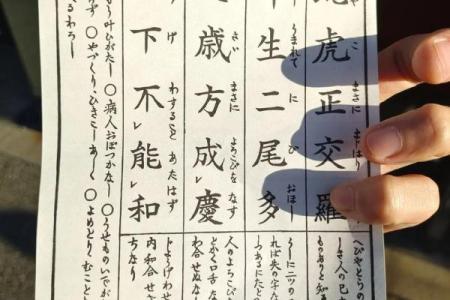 虎正交羅
こ まさに まじはり
へびやとらの
生二尾多
うまれて に び おほし
うしに二ツの
れば失の字な
歳方成慶
さい まさに よろこびを なす
人のよろこび
下不能和
げ わすること あたはず
じょうげわせ
内和合せ
ちなり
叶ひがたし 〇病人おぼつかなし 〇うせものいでが
す 〇やづくり、ひきこしあし 〇よめとり、むこと
るわろし